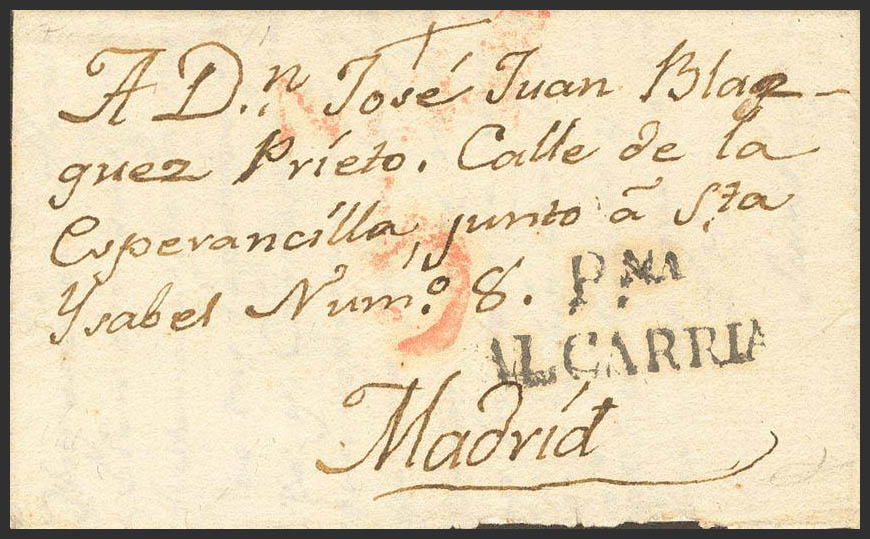 A D.n José Juan Blaz-
quez Prieto. Calle de la
Esperancilla, junto â Sta
Ysabel Num.º 8.
P.NA
ALCARRIA
Madrid